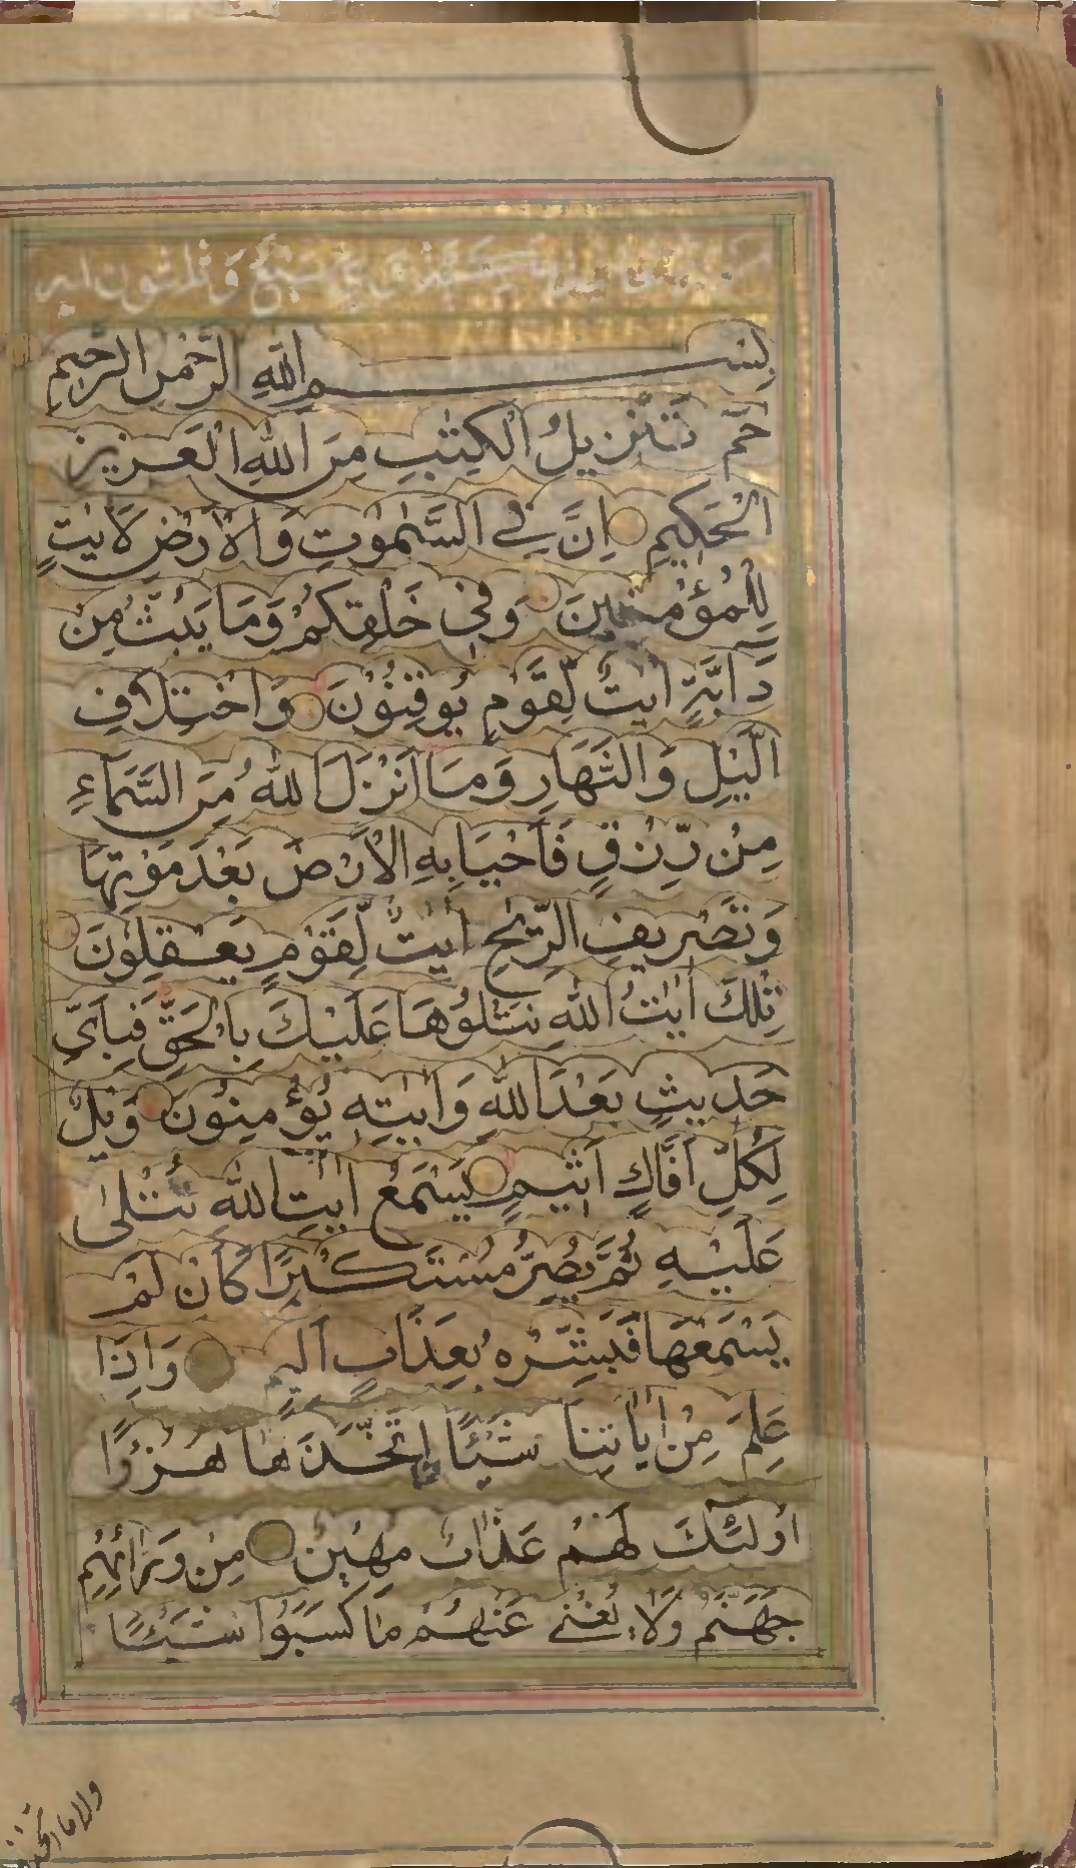 سبع وثلثون اية
بسم الله الرحمن الرحيم
حٰمٓ تَنْزِيلُ الْكِتٰبِ مِنَ اللّٰهِ الْعَزِيزِ
الْحَكِيمِ اِنَّ فِي السَّمٰوٰتِ وَالْاَرْضِ لَاٰيٰتٍ
لِلْمُؤْمِنِينَ وَفِي خَلْقِكُمْ وَمَا يَبُثُّ مِنْ
دَابَّةٍ اٰيٰتٌ لِقَوْمٍ يُوقِنُوْنَ وَاخْتِلَافِ
الَّيْلِ وَالنَّهَارِ وَمَا اَنْزَلَ اللّٰهُ مِنَ السَّمَآءِ
مِنْ رِّزْقٍ فَاَحْيَا بِهِ الْاَرْضَ بَعْدَ مَوْتِهَا
وَتَصْرِيفِ الرِّيٰحِ اٰيٰتٌ لِّقَوْمٍ يَعْقِلُوْنَ
تِلْكَ اٰيٰتُ اللّٰهِ نَتْلُوْهَا عَلَيْكَ بِالْحَقِّ فَبِاَيِّ
حَدِيثٍ بَعْدَ اللّٰهِ وَاٰيٰتِهٖ يُؤْمِنُوْنَ وَيْلٌ
لِكُلِّ اَفَّاكٍ اَثِيمٍ يَسْمَعُ اٰيٰتِ اللّٰهِ تُتْلٰى
عَلَيْهِ ثُمَّ يُصِرُّ مُسْتَكْبِرًا كَاَنْ لَمْ
يَسْمَعْهَا فَبَشِّرْهُ بِعَذَابٍ اَلِيمٍ وَاِذَا
عَلِمَ مِنْ اٰيَاتِنَا شَيْئًا اِتَّخَذَهَا هُزُوًا
اُولٰٓئِكَ لَهُمْ عَذَابٌ مُهِينٌ مِنْ وَرَائِهِمْ
جَهَنَّمُ وَلَا يُغْنِي عَنْهُمْ مَا كَسَبُوْا شَيْئًا
ولا ما اتخذوا